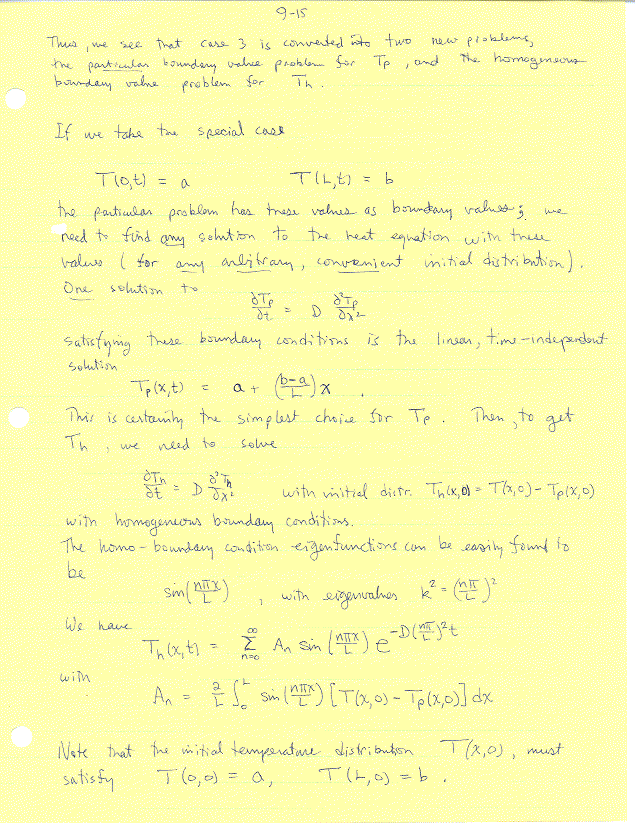 9-15
Thus, we see that case 3 is converted into two new problems,
the particular boundary value problem for Tp, and the homogeneous
boundary value problem for Th.
If we take the special case
T(0,t) = a T(L,t) = b
the particular problem has these values as boundary values; we
need to find any solution to the heat equation with these
values (for any arbitrary, convenient initial distribution).
One solution to
∂Tp/∂t = D ∂²Tp/∂x²
satisfying these boundary conditions is the linear, time-independent
solution
Tp(x,t) = a + (b-a/L) x .
This is certainly the simplest choice for Tp. Then, to get
Th, we need to solve
∂Th/∂t = D ∂²Th/∂x² with initial distr. Th(x,0) = T(x,0) - Tp(x,0)
with homogeneous boundary conditions.
The homo-boundary condition eigenfunctions can be easily found to
be
sin(nπx/L) , with eigenvalues k² = (nπ/L)²
We have
Th(x,t) = ∞ Σ n=0 An sin(nπx/L) e^-D(nπ/L)²t
with
An = 2/L ∫₀^L sin(nπx/L) [T(x,0) - Tp(x,0)] dx
Note that the initial temperature distribution T(x,0), must
satisfy T(0,0) = a, T(L,0) = b .